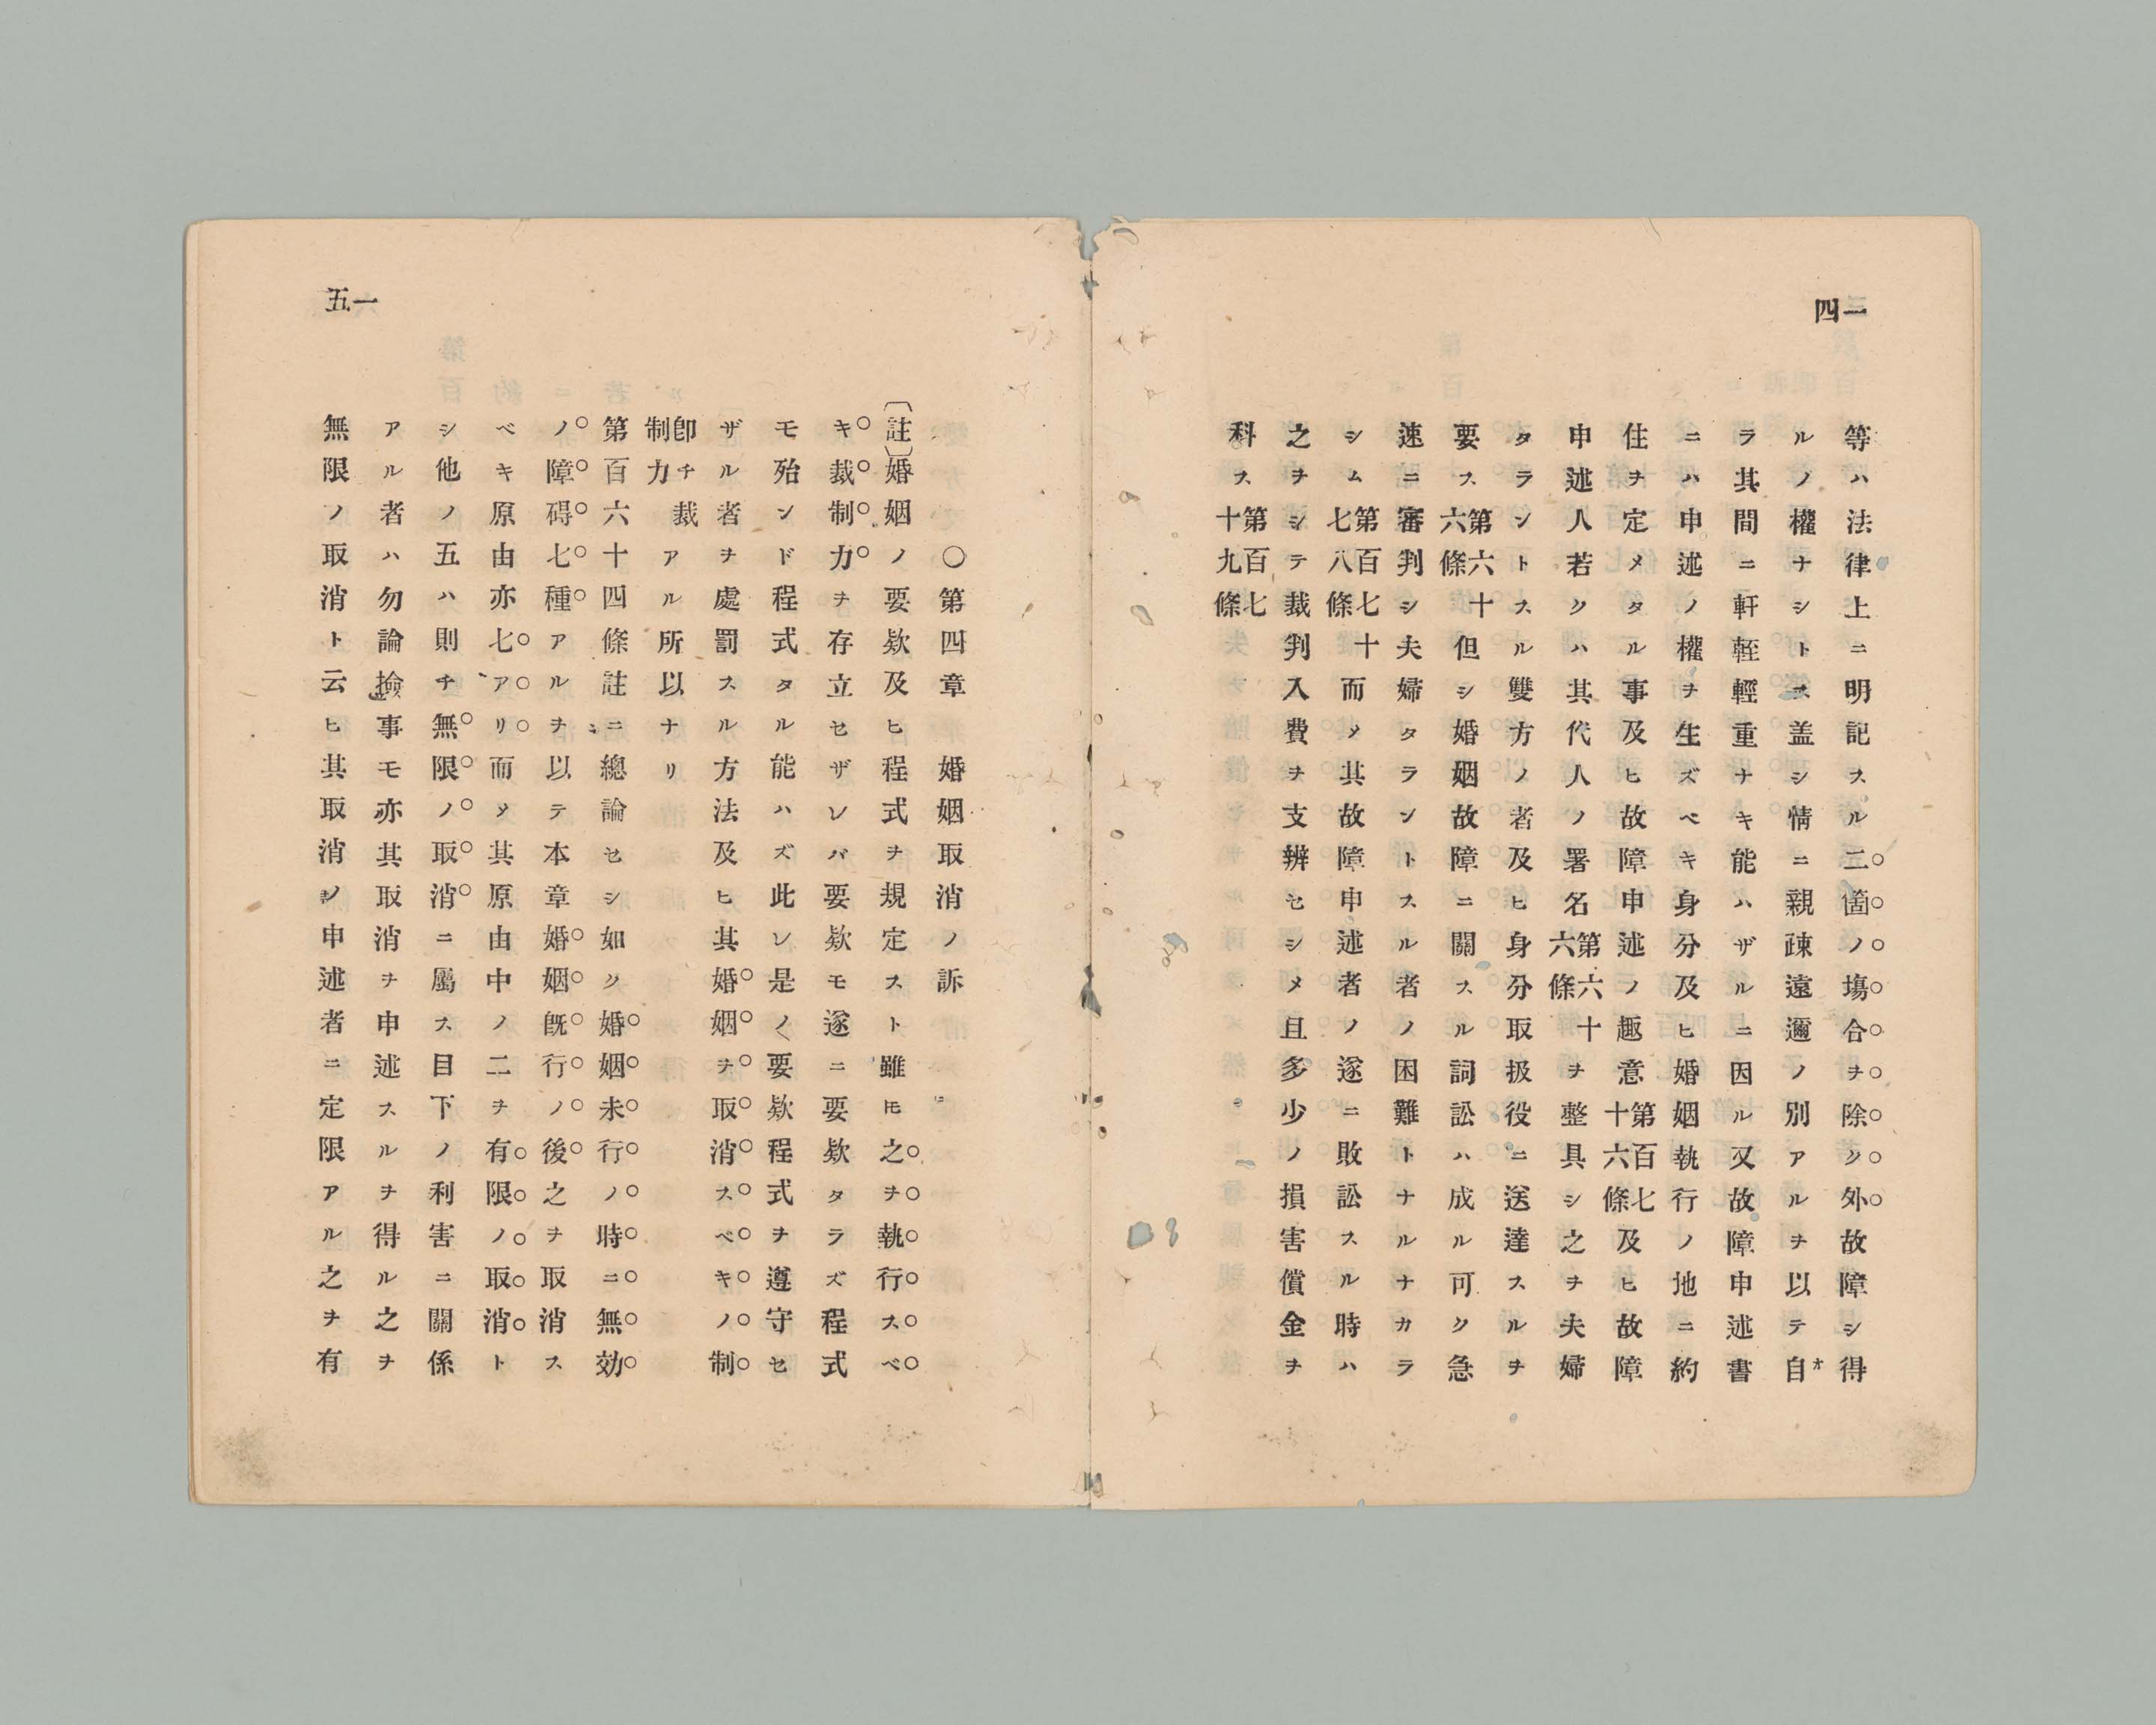 四一
等ハ法律上ニ明記スル二箇ノ塲合ヲ除ク外故障シ得
ルノ權ナシトス盖シ情ニ親疎遠邇ノ別アルヲ以テ自オ
ラ其間ニ軒輊輕重ナキ能ハザルニ因ル又故障申述書
ニハ申述ノ權ヲ生ズベキ身分及ヒ婚姻執行ノ地ニ約
住ヲ定メタル事及ヒ故障申述ノ趣意第百七十六條及ヒ故障
申述人若クハ其代人ノ署名第六十六條ヲ整具シ之ヲ夫婦
タラントスル雙方ノ者及ヒ身分取扱役ニ送達スルヲ
要ス第六十六條但シ婚姻故障ニ關スル詞訟ハ成ル可ク急
速ニ審判シ夫婦タラントスル者ノ困難トナルナカラ
シム第百七十七八條而メ其故障申述者ノ遂ニ敗訟スル時ハ
之ヲシテ裁判入費ヲ支辨セシメ且多少ノ損害償金ヲ
科ス第百七十九條
五一
○第四章 婚姻取消ノ訴
〔註〕婚姻ノ要欵及ヒ程式ヲ規定スト雖𪜈之ヲ執行スベ
キ裁制力ヲ存立セザレバ要欵モ遂ニ要欵タラズ程式
モ殆ンド程式タル能ハズ此レ是ノ要欵程式ヲ遵守セ
ザル者ヲ處罰スル方法及ヒ其婚姻ヲ取消スベキノ制
卽チ裁制力アル所以ナリ
第百六十四條註ニ總論セシ如ク婚姻未行ノ時ニ無効
ノ障碍七種アルヲ以テ本章婚姻既行ノ後之ヲ取消ス
ベキ原由亦七アリ而メ其原由中ノ二ヲ有限ノ取消ト
シ他ノ五ハ則チ無限ノ取消ニ屬ス目下ノ利害ニ關係
アル者ハ勿論撿事モ亦其取消ヲ申述スルヲ得ル之ヲ
無限ノ取消ト云ヒ其取消ノ申述者ニ定限アル之ヲ有